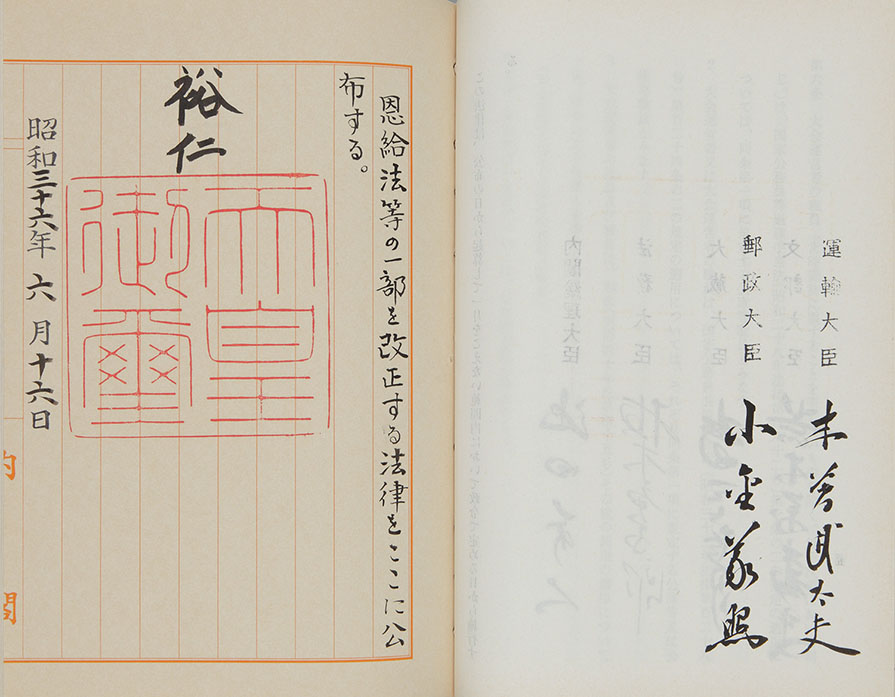 運輸大臣 木暮武太夫
郵政大臣 小金義照
恩給法等の一部を改正する法律をここに公
布する。
裕仁
天皇
御璽
昭和三十六年六月十六日